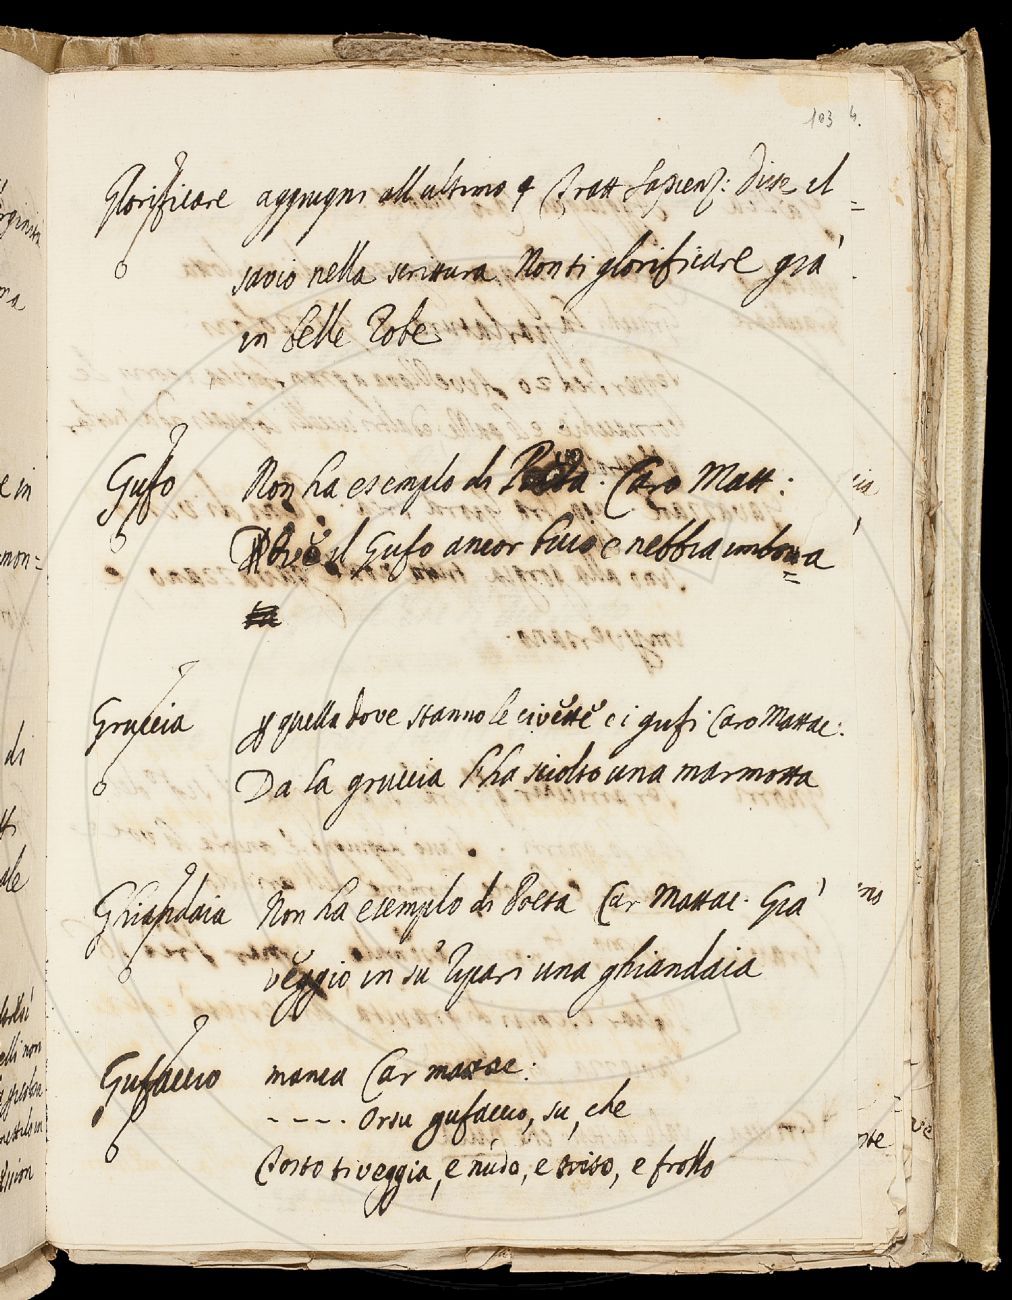 103 4.
Glorificare aggiugni all'ultimo § Tratt Sapienz: Disse il
savio nella scrittura Non ti glorificare già
in belle Robe
Gufo Non ha esemplo di Poeta. Caro Matt:
il Gufo ancor buio e nebbia imbotta
Gruccia quella dove stanno le civette e i gufi Caro Mattac:
Da la gruccia s'ha sciolto una marmotta
Ghiandaia Non ha esemplo di Poeta Car Mattac. Già
veggio in su ripari una ghiandaia
Gufaccio manca Car mattac:
- - - - Orsu gufaccio, su, che
Tosto ti veggia, e nudo, e trito, e frollo